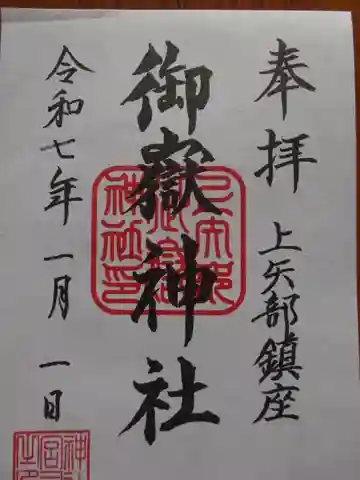 奉拝
上矢部鎮座
御嶽神社
令和七年一月一日